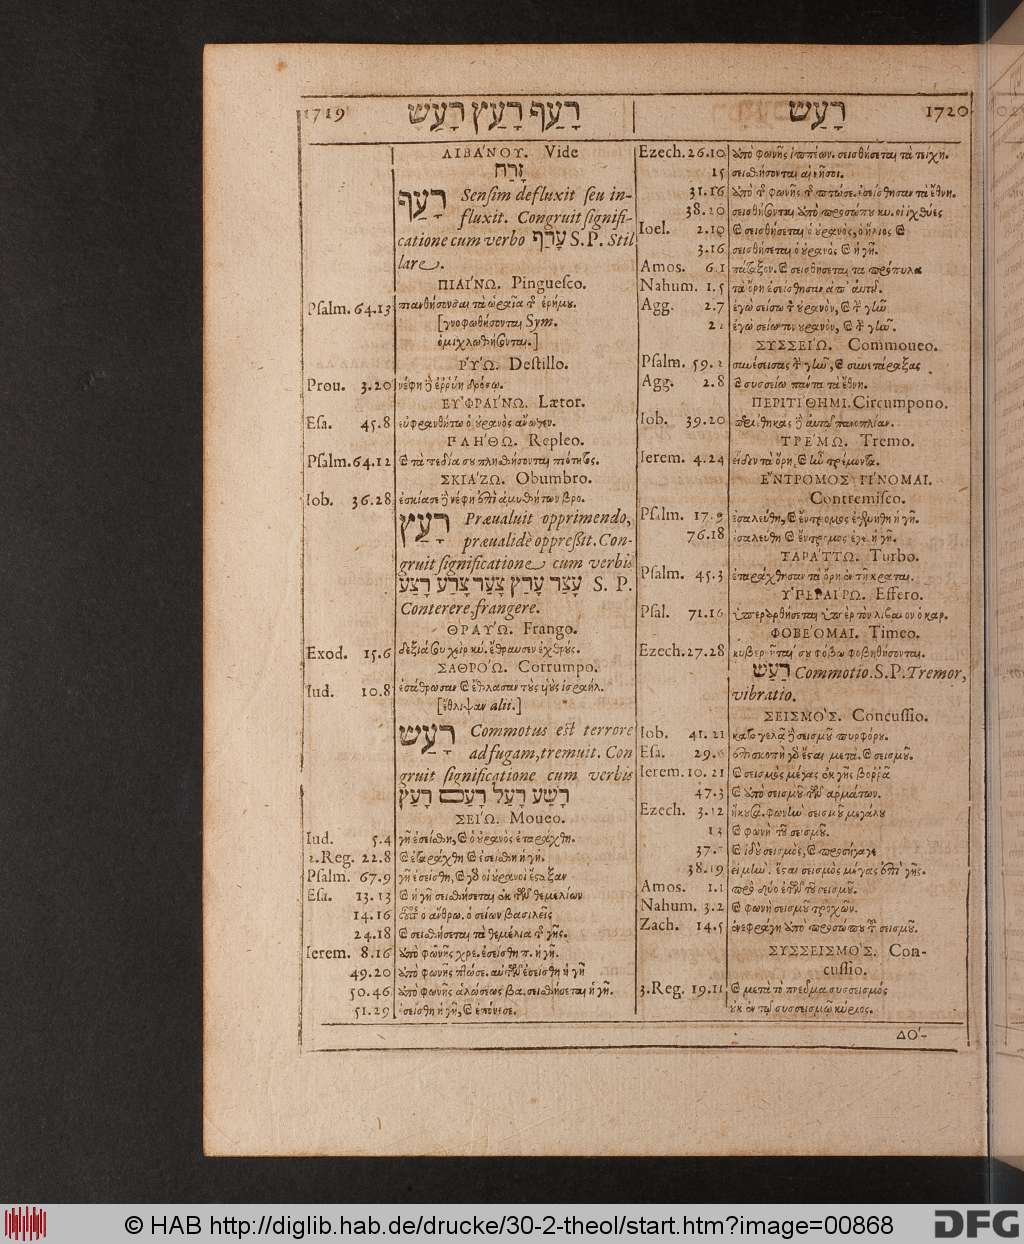 1719 רָעַף רָעַץ רָעַשׁ
ΛΙΒΆΝΟΥ. Vide
זָרַח
רָעַף Sensim defluxit seu in-
fluxit. Congruit signifi-
catione cum verbo עָרַף S. P. Stil
lare.
ΠΙΑΊΝΩ. Pinguesco.
Psalm. 64.13 πιανθήσονται τὰ ὡραῖα τ ἐρήμου.
[γνοφωθήσονται Sym.
ὁμιχλωθήσονται.]
ῬΎΩ. Destillo.
Prou. 3.20 νέφη ἐῤῥύη δρόσῳ.
ΕΥ̓ΦΡΑΊΝΩ. Lætor.
Esa. 45.8 εὐφρανθήτω ὁ οὐρανὸς ἄνωθεν.
ΠΛΉΘΩ. Repleo.
Psalm. 64.12 τὰ πεδία σου πληθήσονται πιότητος.
ΣΚΙΆΖΩ. Obumbro.
Iob. 36.28 ἐσκίασε νέφη ἐπὶ ἀμυθήτων βρο.
רָעַץ Præualuit opprimendo,
præualidè oppressit. Con-
gruit significatione cum verbis
עָצַר עָרַץ צָעַר צָרַע רָצַע S. P.
Conterere, frangere.
ΘΡΑΎΩ. Frango.
Exod. 15.6 δεξιά σου χεὶρ κύ. ἔθραυσεν ἐχθρούς.
ΣΑΘΡΌΩ. Corrumpo.
Iud. 10.8 ἐσάθρωσαν ἔθλασαν τοὺς υἱοὺς ἰσραήλ.
[ἔθλιψαν alii.]
רָעַשׁ Commotus est terrore
ad fugam, tremuit. Con
gruit significatione cum verbis
רָשַׁע רָעַל רָעַם רָעַץ
ΣΕΊΩ. Moueo.
Iud. 5.4 γῆ ἐσείσθη, ὁ οὐρανὸς ἐταράχθη.
2. Reg. 22.8 ἐταράχθη ἐσείσθη ἡ γῆ.
Psalm. 67.9 γῆ ἐσείσθη, οἱ οὐρανοὶ ἔσταξαν
Esa. 13.13 ἡ γῆ σεισθήσεται ἐκ τῶν θεμελίων
14.16 ὁ ἄνθρω. ὁ σείων βασιλεῖς
24.18 σεισθήσεται τὰ θεμέλια τ γῆς.
Ierem. 8.16 ὑπὸ φωνῆς χρε. ἐσείσθη π. ἡ γῆ.
49.20 ὑπὸ φωνῆς πτώσε. αὐτῶν ἐσείσθη ἡ γῆ
50.46 ὑπὸ φωνῆς ἁλώσεως βα. σεισθήσεται ἡ γῆ.
51.29 ἐσείσθη ἡ γῆ, ἐπόνεσε.
רָעַשׁ 1720
Ezech. 26.10 ὑπὸ φωνῆς ἱππέων. σεισθήσεται τὰ τείχη.
15 σεισθήσονται αἱ νῆσοι.
31.16 ὑπὸ τ φωνῆς τ πτώσε. ἐσείσθησαν τὰ ἔθνη.
38.20 σεισθήσονται ὑπὸ προσώπου κυ. οἱ ἰχθύες
Ioel. 2.10 σεισθήσεται ὁ οὐρανὸς, ὁ ἥλιος
3.16 σεισθήσεται ὁ οὐρανὸς ἡ γῆ.
Amos. 6.1 πάταξον. σεισθήσεται τὰ πρόπυλα
Nahum. 1.5 τὰ ὄρη ἐσείσθησαν ἀπ' αὐτοῦ.
Agg. 2.7 ἐγὼ σείσω τ οὐρανὸν, τ γῆν
ἐγὼ σείω τὸν οὐρανὸν, τ γῆν.
ΣΥΣΣΕΊΩ. Commoueo.
Psalm. 59.2 συνέσεισας τ γῆν, συνετάραξας
Agg. 2.8 συσσείω πάντα τὰ ἔθνη.
ΠΕΡΙΤΊΘΗΜΙ. Circumpono.
Iob. 39.20 περιέθηκας αὐτῷ πανοπλίαν.
ΤΡΈΜΩ. Tremo.
Ierem. 4.24 εἶδεν τὰ ὄρη, ἦν τρέμοντα.
ἜΝΤΡΟΜΟΣ ΓΊΝΟΜΑΙ.
Contremisco.
Psalm. 17.9 ἐσαλεύθη, ἔντρομος ἐγενήθη ἡ γῆ.
76.18 ἐσαλεύθη ἔντρομος ἐγε. ἡ γῆ.
ΤΑΡΆΤΤΩ. Turbo.
Psalm. 45.3 ἐταράχθησαν τὰ ὄρη ἐν τῇ κραται.
ὙΠΕΡΑΊΡΩ. Effero.
Psal. 71.16 ὑπεραρθήσεται ὑπὲρ τὸν λίβανον ὁ καρ.
ΦΟΒΈΟΜΑΙ. Timeo.
Ezech. 27.28 κυβερνῆταί σου φόβῳ φοβηθήσονται.
רַעַשׁ Commotio. S. P. Tremor,
vibratio.
ΣΕΙΣΜῸΣ. Concussio.
Iob. 41.21 καταγελᾷ σεισμοῦ πυρφόρου.
Esa. 29. ἐπισκοπὴ γὸ ἔσται μετὰ. σεισμοῦ.
Ierem. 10.21 σεισμὸς μέγας ἐκ γῆς βοῤῥᾶ
47.3 ὑπὸ σεισμοῦ τῶν ἁρμάτων.
Ezech. 3.12 ἤκουσα. φωνὴν σεισμοῦ μεγάλου
13 φωνὴ τοῦ σεισμοῦ.
37. ἰδοὺ σεισμὸς, προσήγαγε
38.19 εἰ μὴν. ἔσται σεισμὸς μέγας ἐπὶ γῆς.
Amos. 1.1 πρὸ δύο ἐτῶν τοῦ σεισμοῦ.
Nahum. 3.2 φωνὴ σεισμοῦ τροχῶν.
Zach. 14.5 ἐνεφράγη ὑπὸ προσώπου τ σεισμοῦ.
ΣΥΣΣΕΙΣΜῸΣ. Con-
cussio.
3. Reg. 19.11 μετὰ τὸ πνεῦμα συσσεισμός
οὐκ ἐν τῷ συσσεισμῷ κύριος.
ΔΌ-
© HAB http://diglib.hab.de/drucke/30-2-theol/start.htm?image=00868
DFG